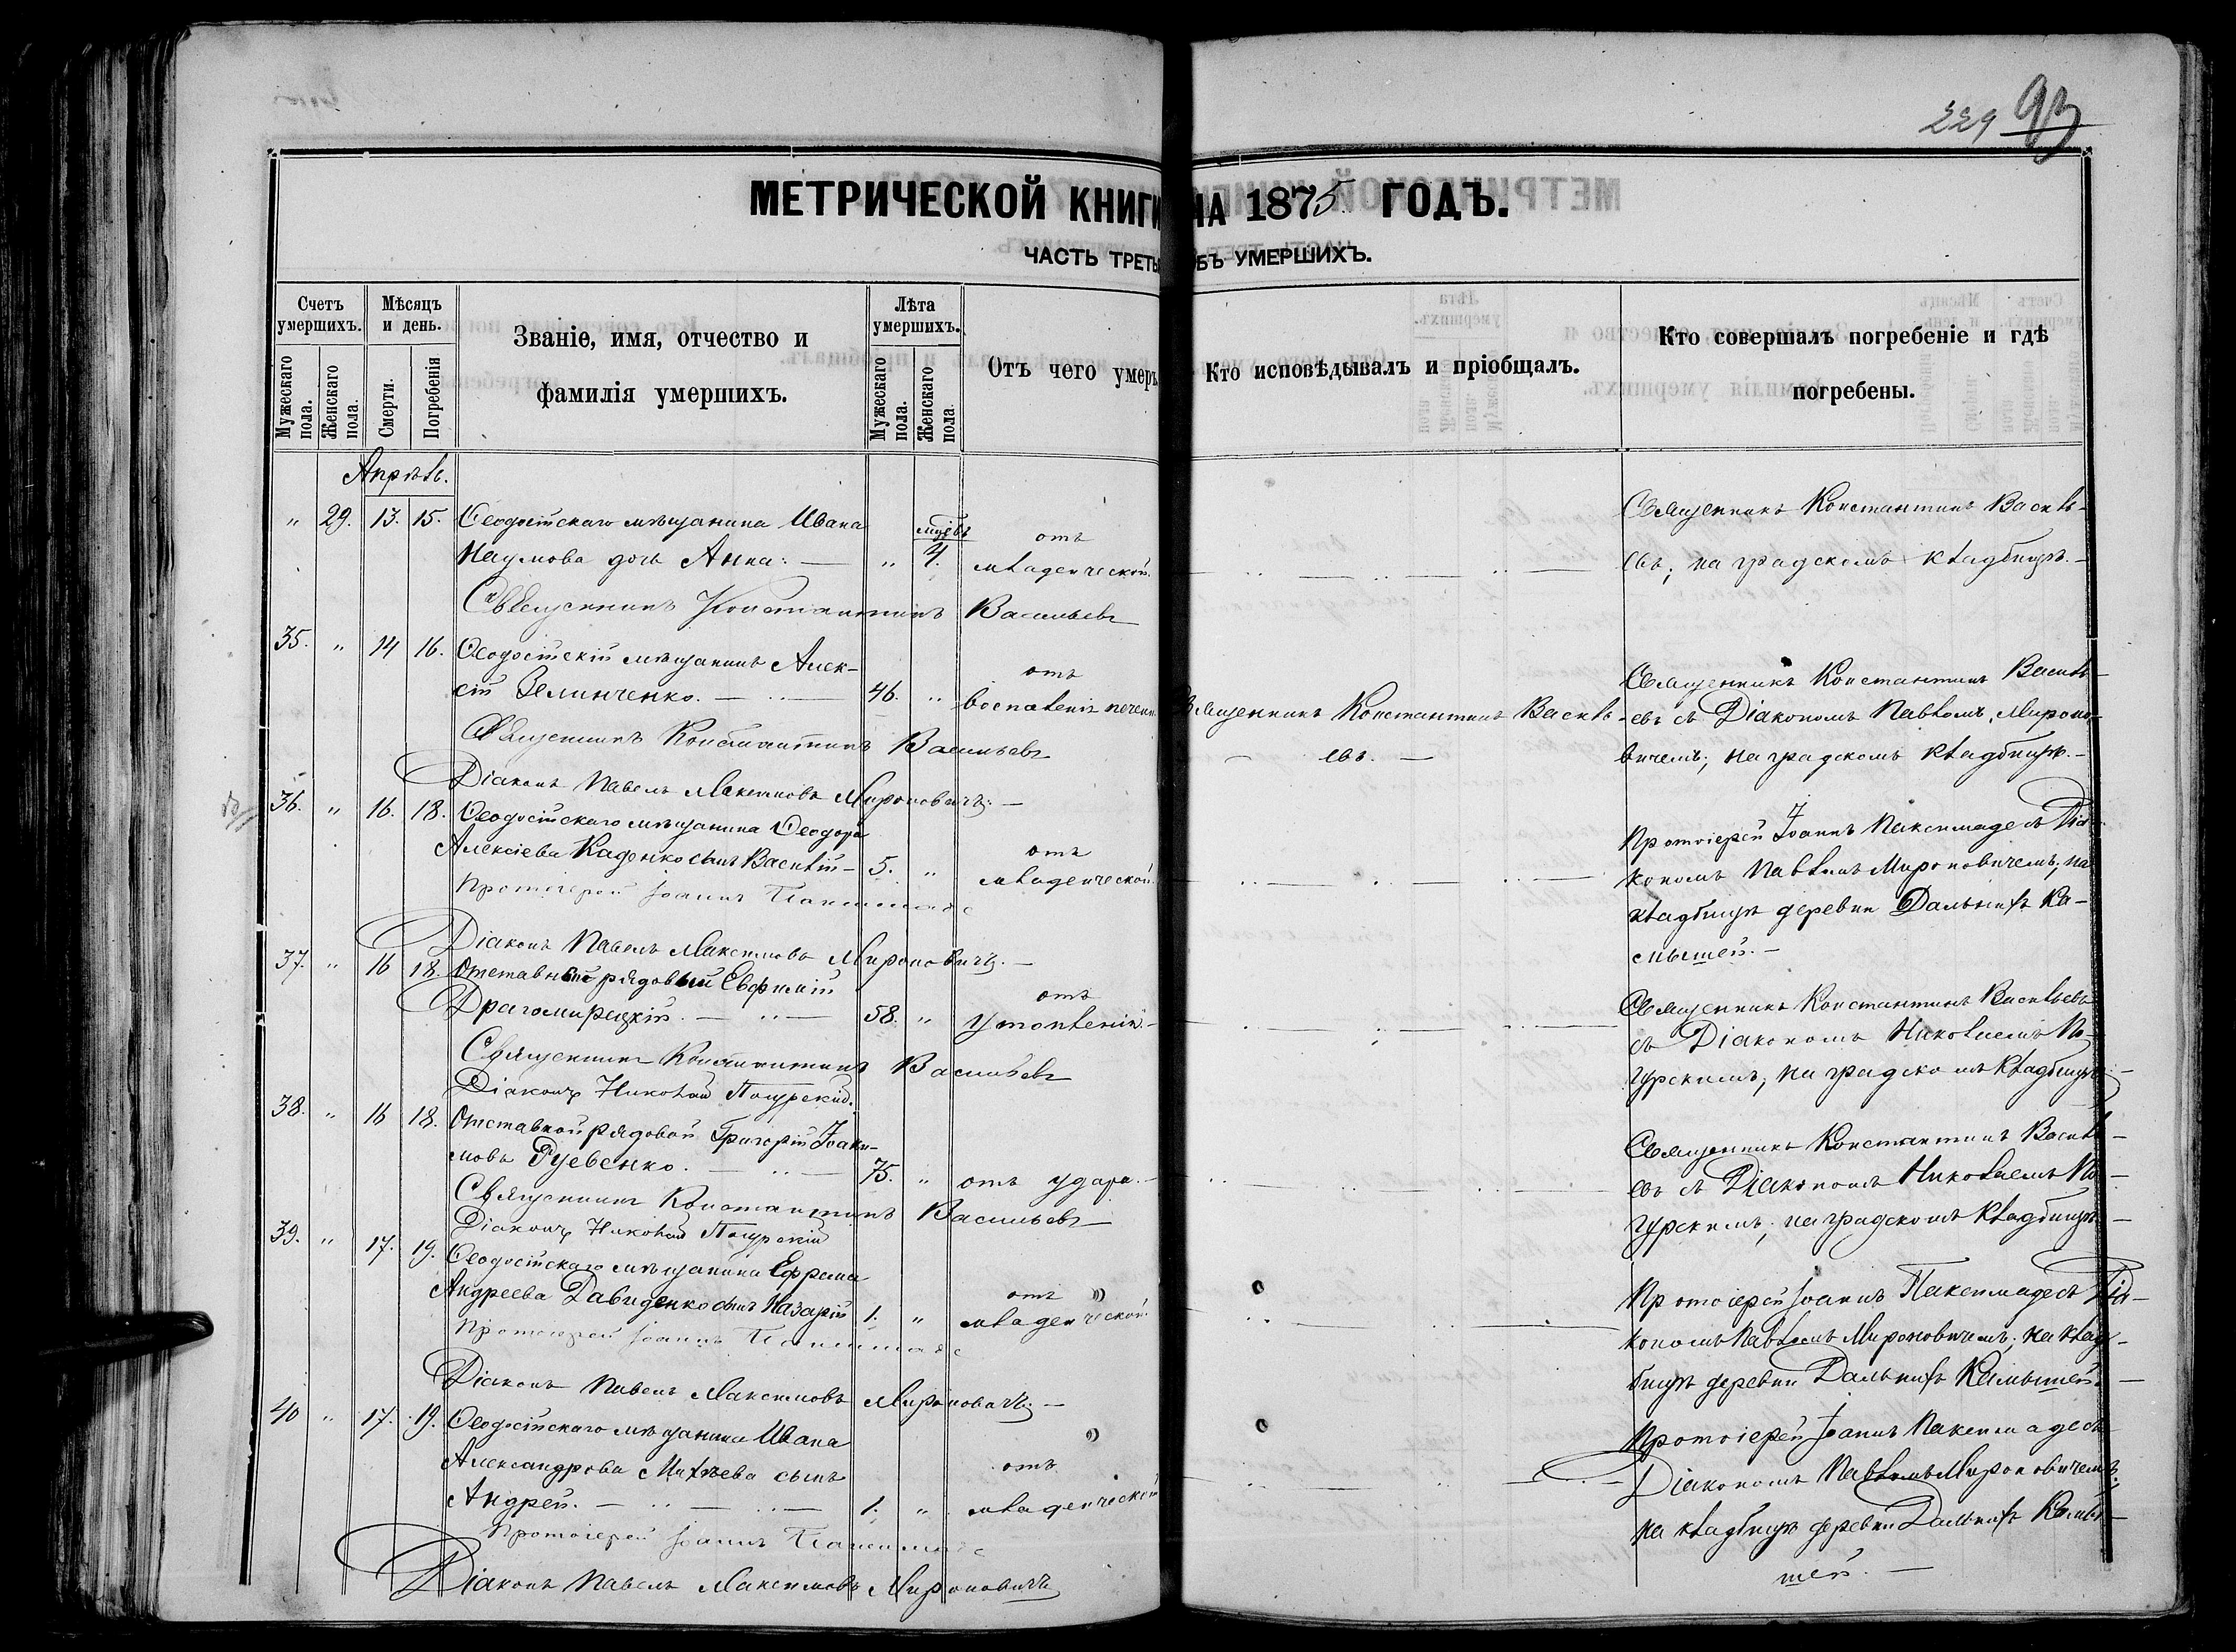 229 93
МЕТРИЧЕСКОЙ КНИГИ НА 1875 ГОДЪ.
ЧАСТЬ ТРЕТЬ БЪ УМЕРШИХЪ.
Счетъ умершихъ.
Мужескаго пола.
Женскаго пола.
Мѣсяцъ и день.
Смерти.
Погребенія
Званіе, имя, отчество и
фамилія умершихъ.
Лѣта умершихъ.
Мужескаго пола.
Женскаго пола.
Отъ чего умеръ
Кто исповѣдывалъ и пріобщалъ.
Кто совершалъ погребеніе и гдѣ
погребены.
Апрѣль.
" 29. 13. 15. Ѳеодосійскаго мѣщанина Ивана
Наумова дочь Анна. — " мѣсъ 4. отъ
младенческой.
Священникъ Константинъ Василь-
евъ; на градскомъ кладбищѣ. —
Священникъ Константинъ Васильевъ
35. " 14 16. Ѳеодосійскій мѣщанинъ Алек-
сій Зелинченко. — 46. " отъ
воспаленія печени
Священникъ Константинъ Василь-
евъ. —
Священникъ Константинъ Василь-
евъ съ Діакономъ Павломъ Мироно-
вичемъ; на градскомъ кладбищѣ. —
Священникъ Константинъ Васильевъ
Діаконъ Павелъ Максимовъ Мироновичъ. —
36. " 16. 18. Ѳеодосійскаго мѣщанина Ѳеодора
Алексіева Каденко сынъ Василій — 5. " отъ
младенческой.
Протоіерей Іоаннъ Паксимаде съ Діа-
кономъ Павломъ Мироновичемъ; на
кладбищѣ деревни Дальнихъ Ка-
мышей. —
Протоіерей Іоаннъ Паксимаде
Діаконъ Павелъ Максимовъ Мироновичъ. —
37. " 16 18. Отставный рядовый Евфимій
Драгомирецкій. — 58. " отъ
утопленія. —
Священникъ Константинъ Васильевъ
съ Діакономъ Николаемъ По-
гурскимъ; на градскомъ кладбищѣ. —
Священникъ Константинъ Васильевъ
Діаконъ Николай Погурскій.
38. " 16 18. Отставной рядовой Григорій Іоаки-
мовъ Руевенко. — 75. " отъ удара. —
Священникъ Константинъ Василь-
евъ съ Діакономъ Николаемъ По-
гурскимъ; на градскомъ кладбищѣ. —
Священникъ Константинъ Васильевъ
Діаконъ Николай Погурскій
39. " 17. 19. Ѳеодосійскаго мѣщанина Ефрема
Андреева Давиденко сынъ Назарій 1. " отъ
младенческой.
Протоіерей Іоаннъ Паксимаде съ Діа-
кономъ Павломъ Мироновичемъ; на клад-
бищѣ деревни Дальнихъ Камышей. —
Протоіерей Іоаннъ Паксимаде
Діаконъ Павелъ Максимовъ Мироновичъ. —
40 " 17. 19. Ѳеодосійскаго мѣщанина Ивана
Александрова Михѣева сынъ
Андрей. — 1. " отъ
младенческой
Протоіерей Іоаннъ Паксимаде съ
Діакономъ Павломъ Мироновичемъ;
на кладбищѣ деревни Дальнихъ Камы-
шей. —
Протоіерей Іоаннъ Паксимаде
Діаконъ Павелъ Максимовъ Мироновичъ